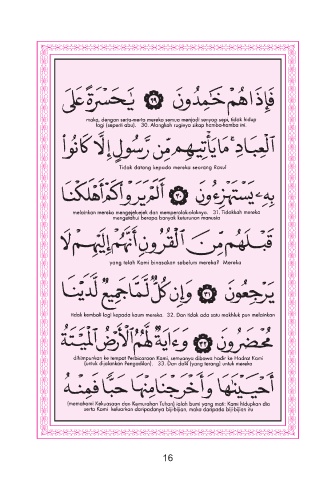 فَإِذَا هُمْ خَٰمِدُونَ ۝٢٩ يَٰحَسْرَةً عَلَى
maka, dengan serta-merta mereka semua menjadi senyap sepi, tidak hidup
lagi (seperti abu). 30. Alangkah ruginya sikap hamba-hamba ini.
ٱلْعِبَادِ مَا يَأْتِيهِم مِّن رَّسُولٍ إِلَّا كَانُوا۟
Tidak datang kepada mereka seorang Rasul
بِهِۦ يَسْتَهْزِءُونَ ۝٣٠ أَلَمْ يَرَوْا۟ كَمْ أَهْلَكْنَا
melainkan mereka mengejek-ejek dan memperolok-oloknya. 31. Tidakkah mereka
mengetahui berapa banyak keturunan manusia
قَبْلَهُم مِّنَ ٱلْقُرُونِ أَنَّهُمْ إِلَيْهِمْ لَا
yang telah Kami binasakan sebelum mereka? Mereka
يَرْجِعُونَ ۝٣١ وَإِن كُلٌّ لَّمَّا جَمِيعٌ لَّدَيْنَا
tidak kembali lagi kepada kaum mereka. 32. Dan tidak ada satu makhluk pun melainkan
مُحْضَرُونَ ۝٣٢ وَءَايَةٌ لَّهُمُ ٱلْأَرْضُ ٱلْمَيْتَةُ
dihimpunkan ke tempat Perbicaraan Kami, semuanya dibawa hadir ke Hadrat Kami
(untuk dijalankan Pengadilan). 33. Dan dalil (yang terang) untuk mereka
أَحْيَيْنَٰهَا وَأَخْرَجْنَا مِنْهَا حَبًّا فَمِنْهُ
(memahami Kekuasaan dan Kemurahan Tuhan) ialah bumi yang mati: Kami hidupkan dia
serta Kami keluarkan daripadanya biji-bijian, maka daripada biji-bijian itu
16